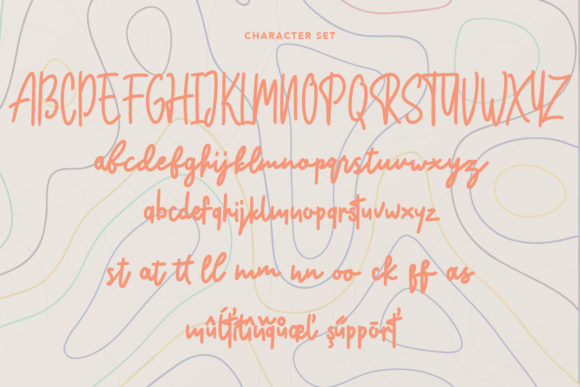 CHARACTER SET
ABCDEFGHIJKLMNOPQRSTUVWXYZ
abcdefghijklmnopqrstuvwxyz
abcdefghijklmnopqrstuvwxyz
st at tt ll mm nn oo ck ff as
şűppōrť